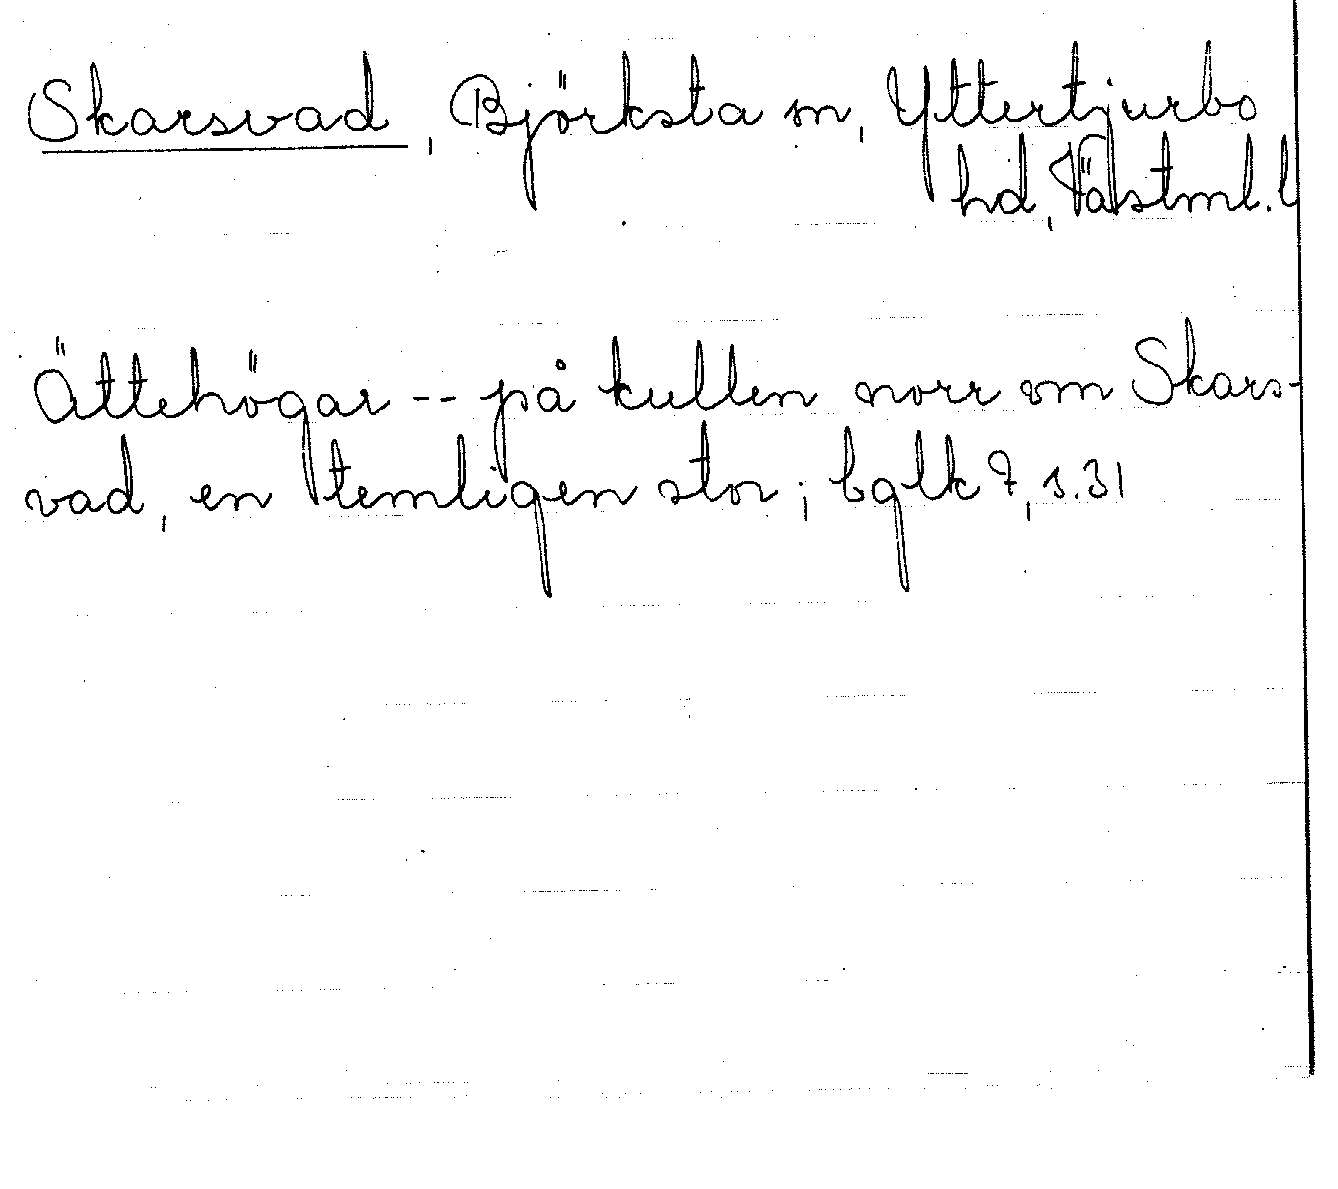 Skarsvad, Björksta sn, Yttertjurbo
hd, Västml. l
Ättehögar -- på kullen norr om Skars-
vad, en temligen stor; bglk 7, s. 31